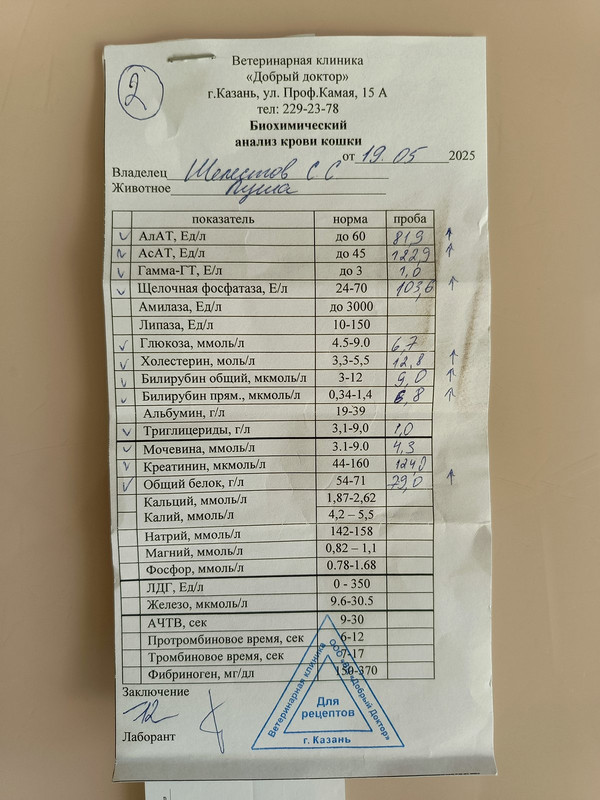 2
Ветеринарная клиника
«Добрый доктор»
г.Казань, ул. Проф.Камая, 15 А
тел: 229-23-78
Биохимический
анализ крови кошки
от 19.05 2025
Владелец Шелестов С С
Животное
показатель норма проба
АлАТ, Ед/л до 60 81,9 ↑
АсАТ, Ед/л до 45 122,9 ↑
Гамма-ГТ, Е/л до 3 1,0
Щелочная фосфатаза, Е/л 24-70 103,6 ↑
Амилаза, Ед/л до 3000
Липаза, Ед/л 10-150
Глюкоза, ммоль/л 4.5-9.0 6,7
Холестерин, моль/л 3,3-5,5 12,8 ↑
Билирубин общий, мкмоль/л 3-12 9,0 ↑
Билирубин прям., мкмоль/л 0,34-1,4 6,8 ↑
Альбумин, г/л 19-39
Триглицериды, г/л 3,1-9,0 1,0
Мочевина, ммоль/л 3.1-9.0 4,3
Креатинин, мкмоль/л 44-160 124,0
Общий белок, г/л 54-71 79,0 ↑
Кальций, ммоль/л 1,87-2,62
Калий, ммоль/л 4,2 – 5,5
Натрий, ммоль/л 142-158
Магний, ммоль/л 0,82 – 1,1
Фосфор, ммоль/л 0.78-1.68
ЛДГ, Ед/л 0 - 350
Железо, мкмоль/л 9.6-30.5
АЧТВ, сек 9-30
Протромбиновое время, сек 6-12
Тромбиновое время, сек 7-17
Фибриноген, мг/дл 150-370
Заключение
12
Лаборант
Ветеринарная клиника
«Добрый Доктор»
Для
рецептов
г. Казань